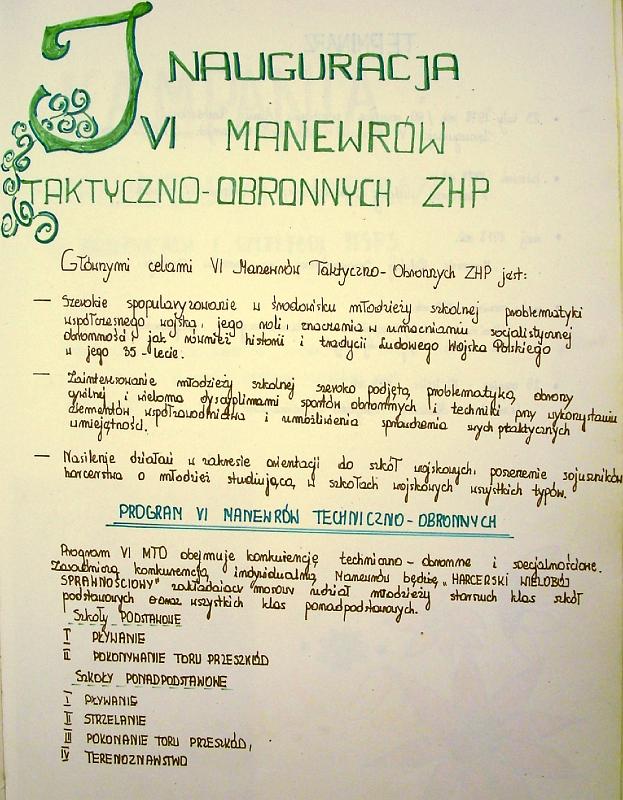 INAUGURACJA
VI MANEWRÓW
TAKTYCZNO-OBRONNYCH ZHP
Głównymi celami VI Manewrów Taktyczno-Obronnych ZHP jest:
— Szerokie spopularyzowanie w środowisku młodzieży szkolnej problematyki
współczesnego wojska, jego roli, znaczenia w umacnianiu socjalistycznej
obronności jak również historii i tradycji Ludowego Wojska Polskiego
w jego 35-lecie.
— Zainteresowanie młodzieży szkolnej szeroko podjętą problematyką, obrony
cywilnej i wieloma dyscyplinami sportów obronnych i techniki przy wykorzystaniu
elementów, współzawodnictwa i umożliwienia sprawdzenia swych praktycznych
umiejętności.
— Nasilenie działań w zakresie orientacji do szkół wojskowych, poszerzenie sojuszników
harcerstwa o młodzież studiującą, w szkołach wojskowych wszystkich typów.
PROGRAM VI MANEWRÓW TECHNICZNO-OBRONNYCH
Program VI MTO obejmuje konkurencję techniczno-obronne i specjalnościowe.
Zasadniczą konkurencją indywidualną Manewrów będzie „HARCERSKI WIELOBÓJ
SPRAWNOŚCIOWY" zakładający masowy udział młodzieży starszych klas szkół
podstawowych oraz wszystkich klas ponadpodstawowych.
Szkoły PODSTAWOWE
I PŁYWANIE
II POKONYWANIE TORU PRZESZKÓD
Szkoły PONADPODSTAWOWE
I PŁYWANIE
II STRZELANIE
III POKONANIE TORU PRZESZKÓD,
IV TERENOZNAWSTWO